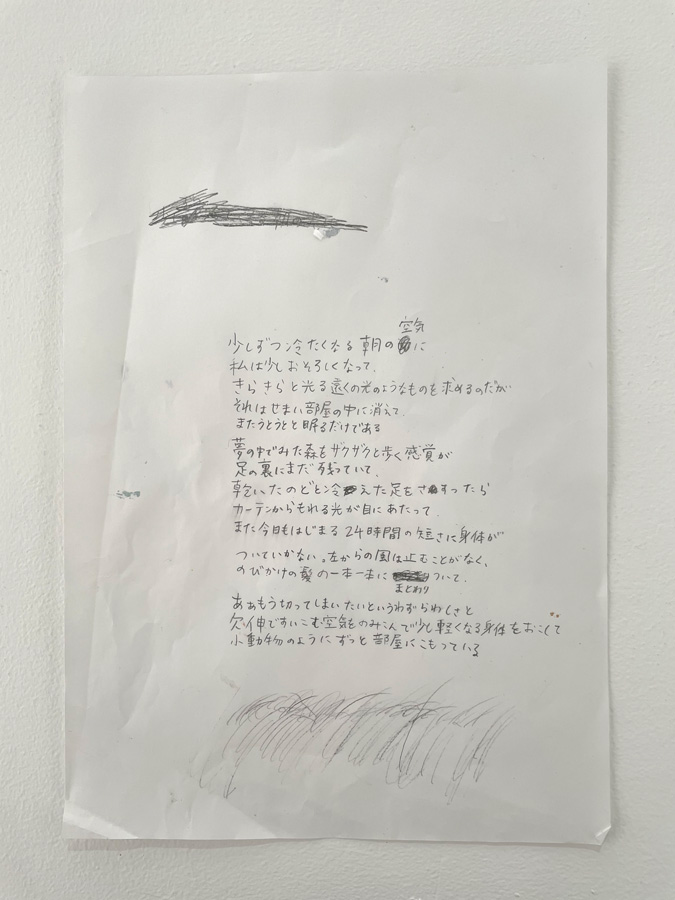 少しずつ冷たくなる朝の空気に
私は少しおそろしくなって、
きらきらと光る遠くの光のようなものを求めるのだが
それはせまい部屋の中に消えて、
またうとうとと眠るだけである
夢の中でみた森をザクザクと歩く感覚が
足の裏にまだ残っていて、
乾いたのどと冷えた足をさすったら
カーテンからもれる光が目にあたって、
また今日もはじまる24時間の短さに身体が
ついていかない。左からの風は止むことがなく、
のびかけの髪の一本一本にまとわりついて、
あぁもう切ってしまいたいというわずらわしさと
欠伸ですいこむ空気をのみこんで少し軽くなる身体をおこして
小動物のようにずっと部屋にこもっている